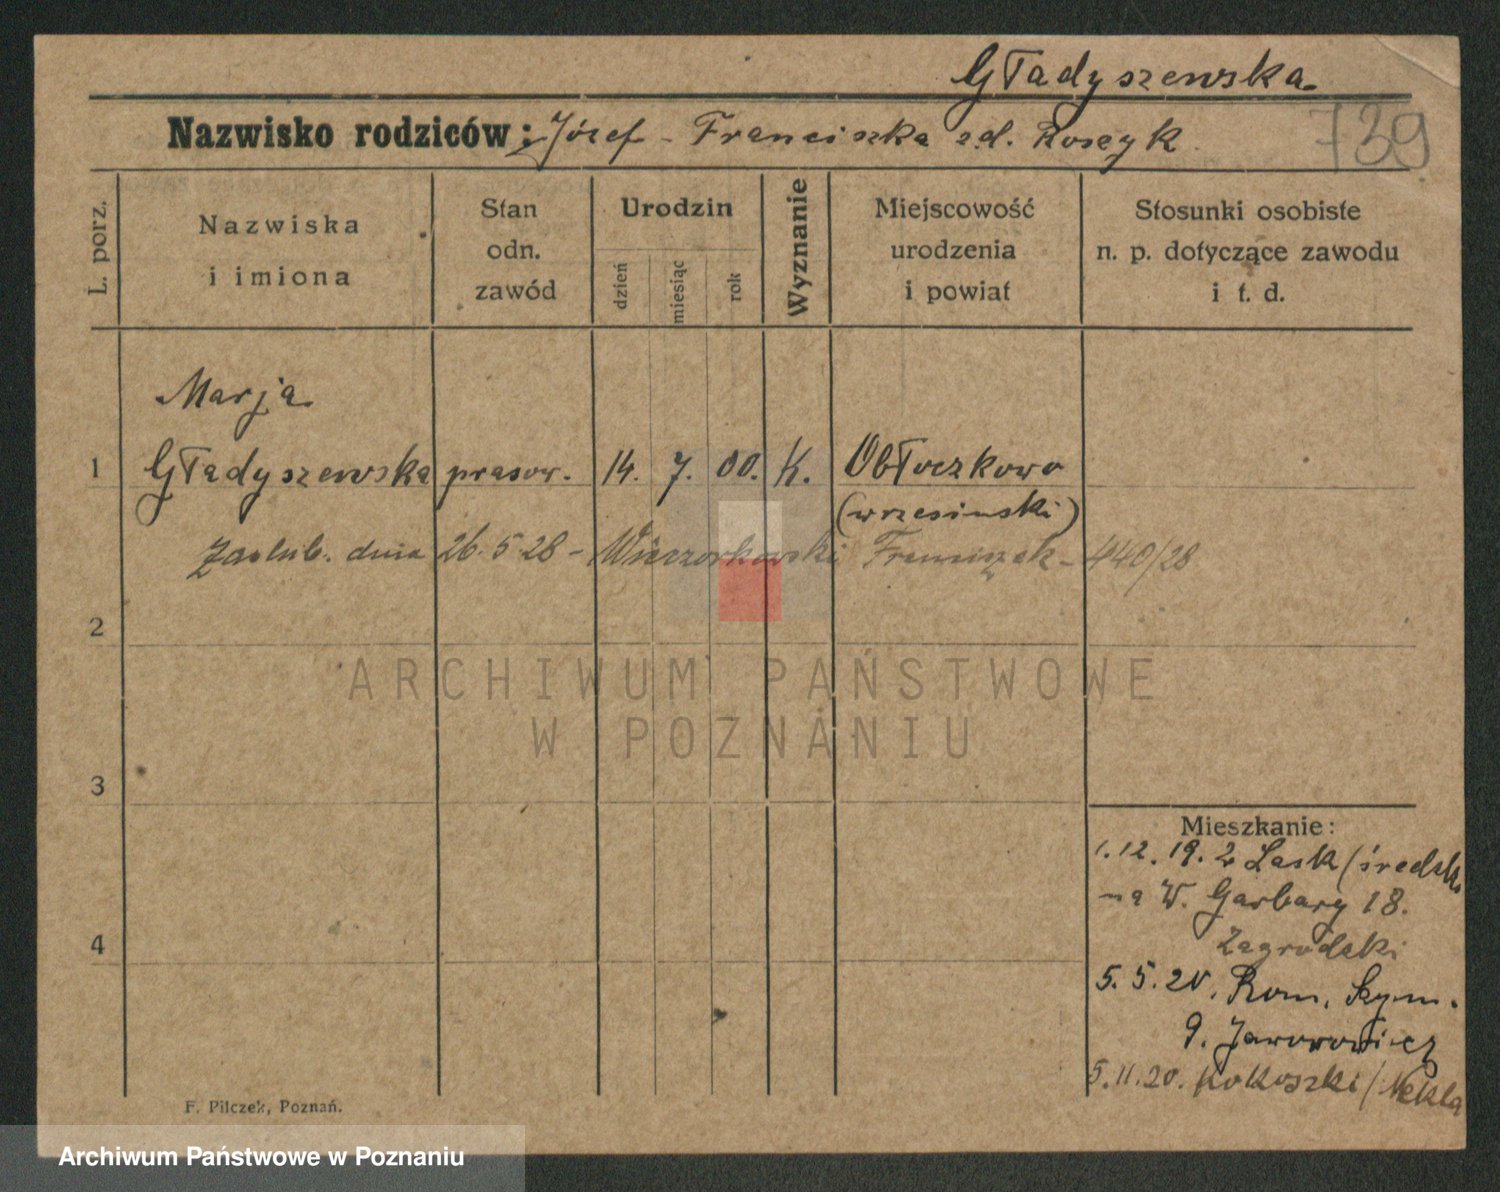 Gładyszewska
Nazwisko rodziców: Józef - Franciszka zd. Roszyk
739
L. porz.
Nazwiska
i imiona
Stan
odn.
zawód
Urodzin
dzień
miesiąc
rok
Wyznanie
Miejscowość
urodzenia
i powiat
Stosunki osobiste
n. p. dotyczące zawodu
i t. d.
Marja
1 Gładyszewska prasow. 14. 7. 00. K. Obłoczkowo
(wrzesiński)
Zaślub. dnia 26.5.28 - Wieczorkowski Franciszek - 440/28
2
ARCHIWUM PAŃSTWOWE
W POZNANIU
3
Mieszkanie:
1.12.19. z Lask (średzk
na W. Garbary 18.
4
Zagrodzki
5.5.20. Rom. Szym.
9. Jaworowicz
5.11.20. Kokoszki / Nekla
F. Pilczek, Poznań.
Archiwum Państwowe w Poznaniu